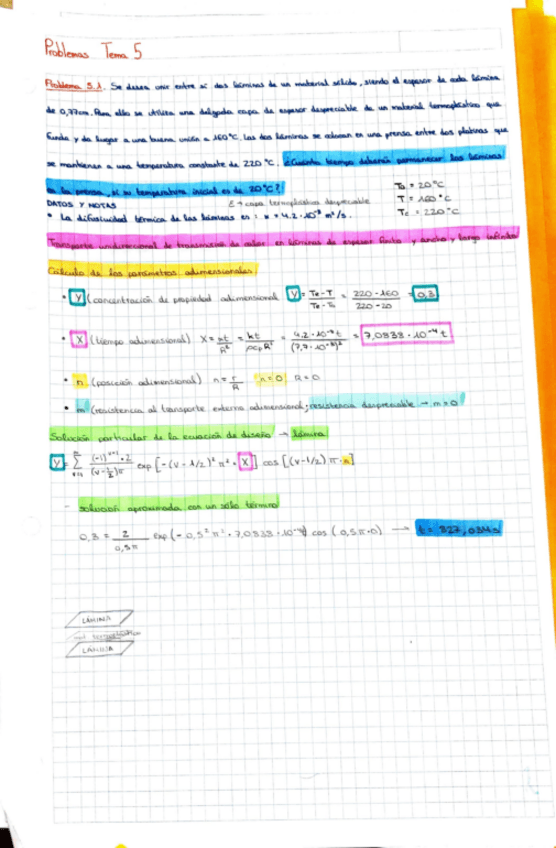 Problemas Tema 5
Problema 5.1. Se desea unir entre sí dos láminas de un material sólido, siendo el espesor de cada lámina
de 0,77cm. Para ello se utiliza una delgada capa de espesor despreciable de un material termoplástico que
funda y da lugar a una buena unión a 160°C. Las dos láminas se colocan en una prensa, entre dos platinas que
se mantienen a una temperatura constante de 220°C. ¿Cuánto tiempo deberán permanecer las láminas
en la prensa, si su temperatura inicial es de 20°C? T₀ = 20°C
DATOS Y NOTAS capa termoplástica despreciable T = 160°C
• La difusividad térmica de las láminas es: 4,2·10⁻⁸ m²/s. Te = 220°C
Transporte unidireccional de transmisión de calor en láminas de espesor finito y ancho y largo infinito
Cálculo de los parámetros adimensionales:
• Y (concentración de propiedad adimensional) Y = Te-T / Te-T₀ = 220-160 / 220-20 = 0,3
• X (tiempo adimensional) X = αt / R² = kt / ρCpR² = 4,2·10⁻⁸ t / (7,7·10⁻³)² = 7,0838·10⁻⁴ t
• n (posición adimensional) n = r / R n=0 R=0
• m (resistencia al transporte externa adimensional; resistencia despreciable → m=0
Solución particular de la ecuación de diseño → lámina
Y = Σ (-1)^(v+1)·2 / (v-1/2)π exp[-(v-1/2)²π²·X] cos[(v-1/2)π·n]
- solución aproximada con un sólo término
0,3 = 2 / 0,5π exp(-0,5²π²·7,0838·10⁻⁴t) cos(0,5π·0) → t = 827,034s
LÁMINA
LÁMINA